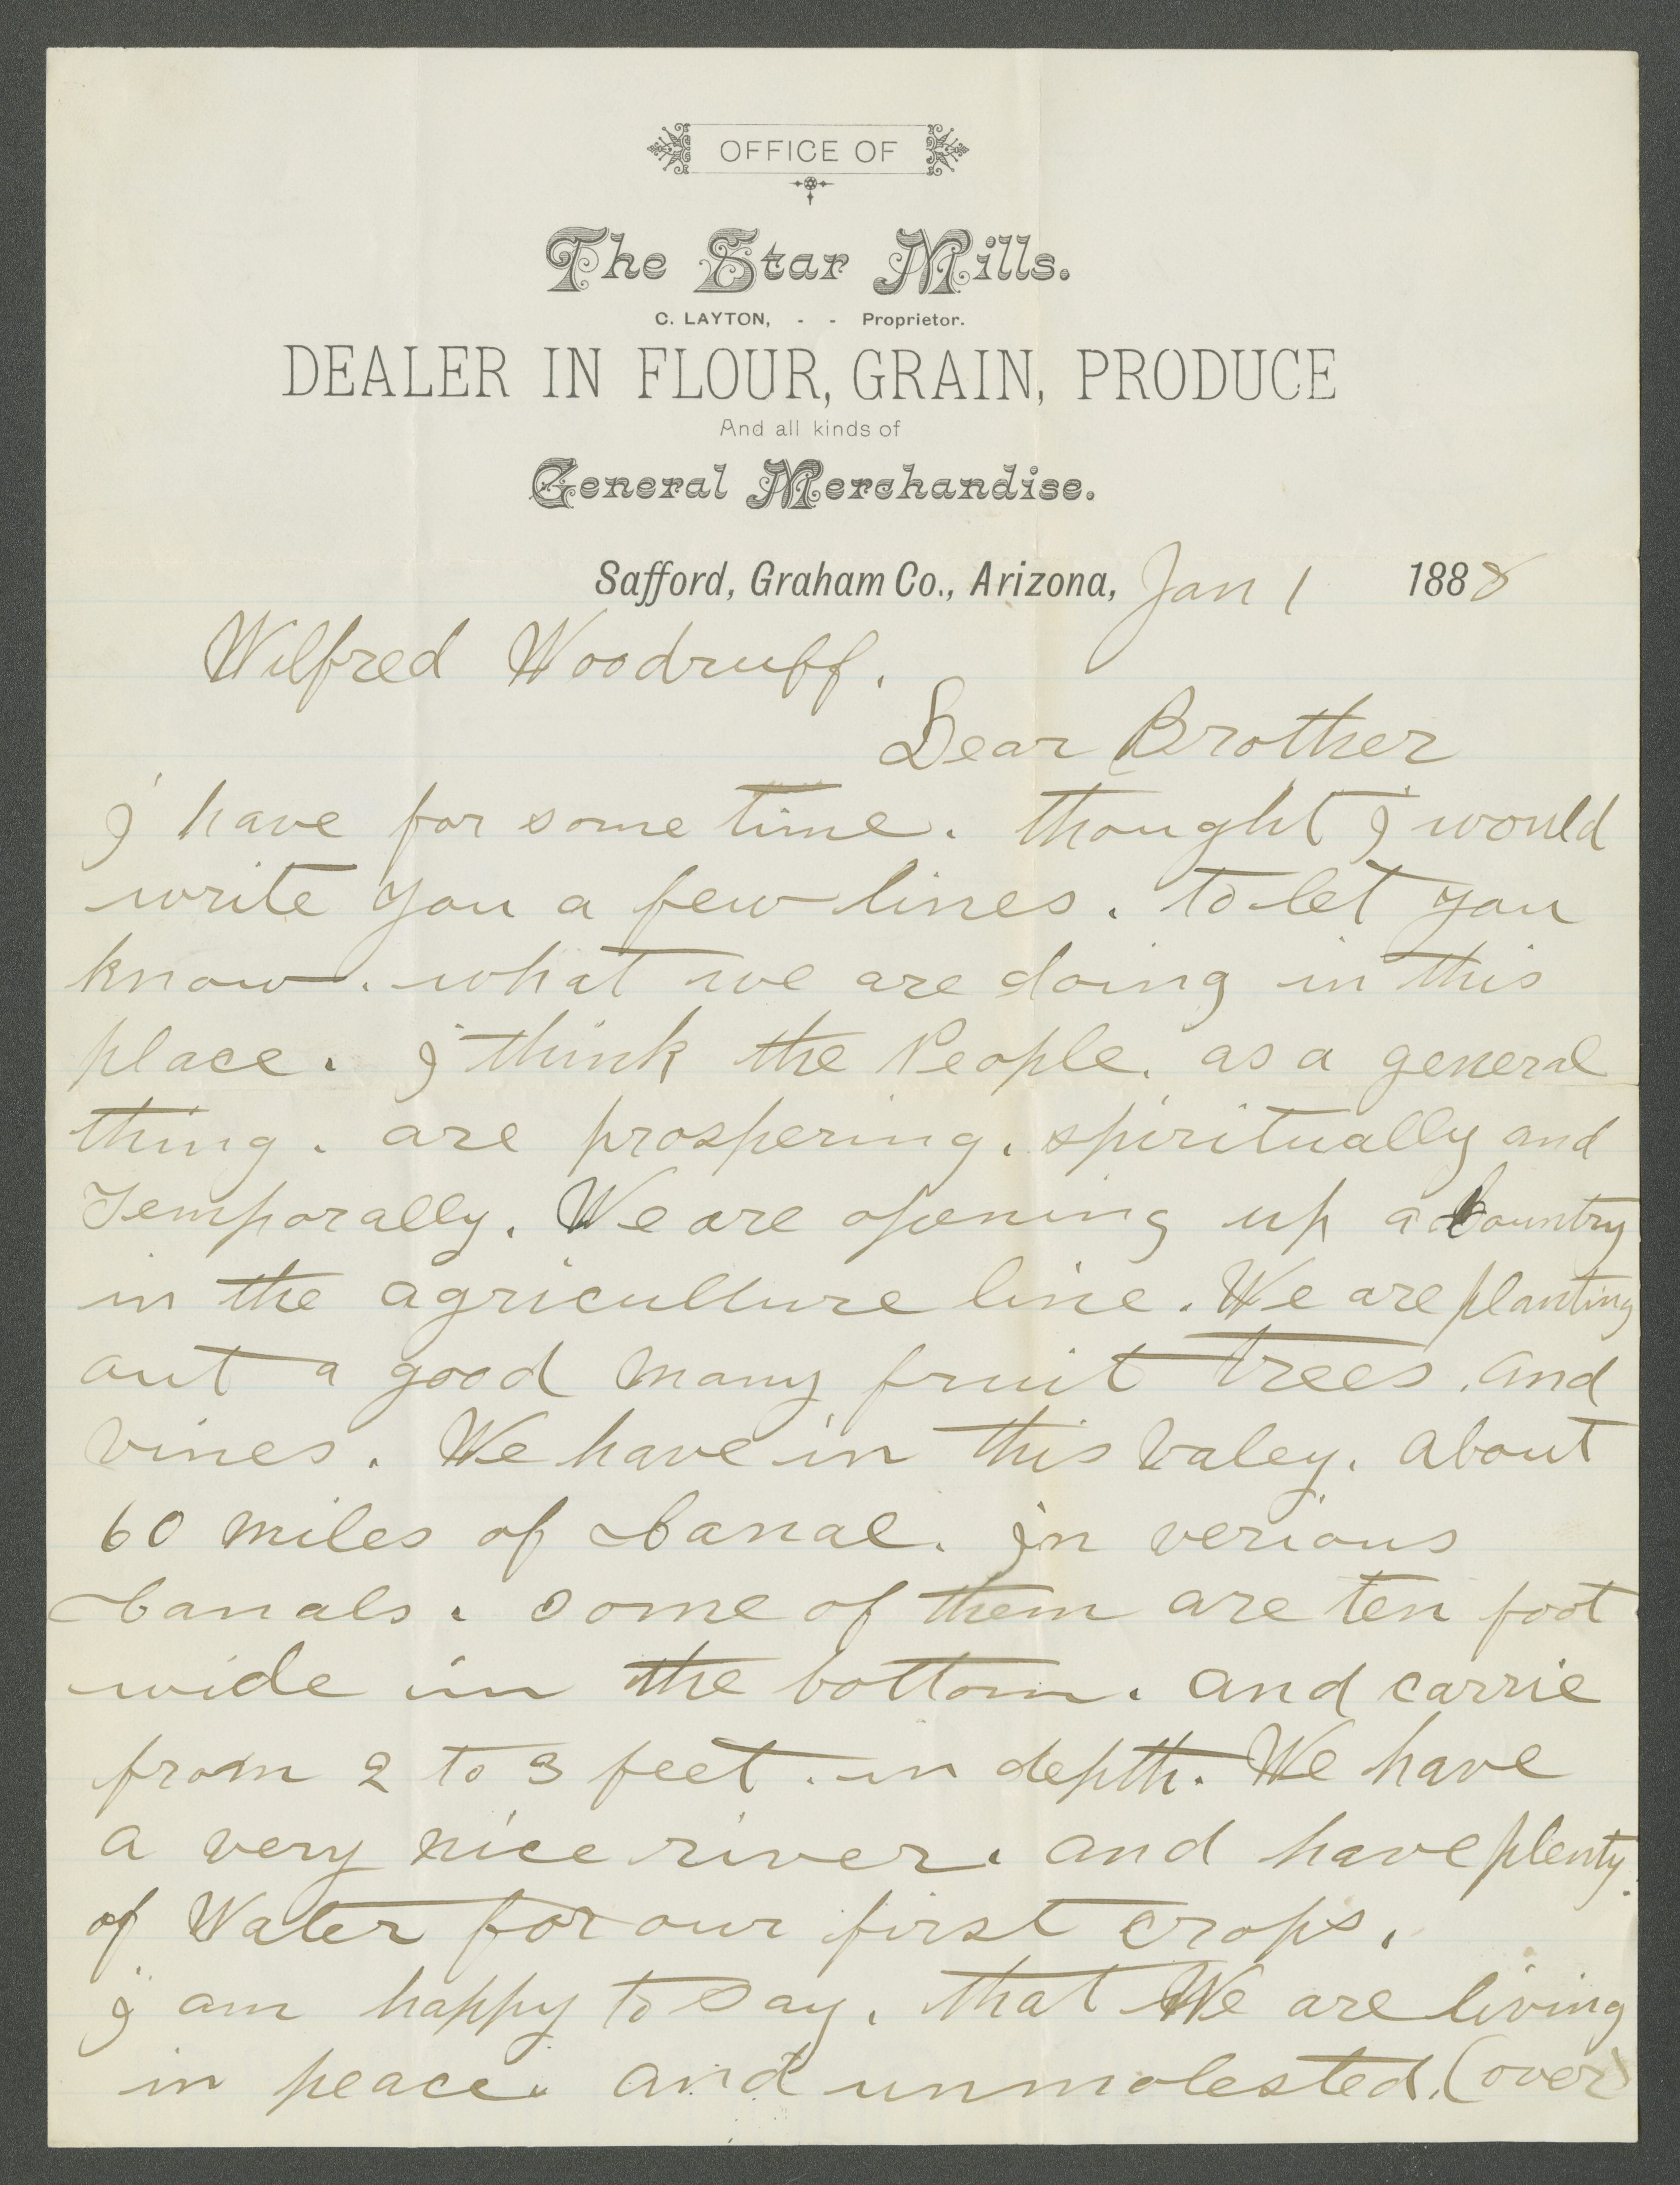 OFFICE OF
The Star Mills.
C. LAYTON, - - Proprietor.
DEALER IN FLOUR, GRAIN, PRODUCE
And all kinds of
General Merchandise.
Safford, Graham Co., Arizona, Jan 1 1888
Wilfred Woodruff.
Dear Brother
I have for some time. thought I would
write you a few lines. to let you
know. what we are doing in this
place. I think the People. as a general
thing. are prospering. spiritually and
Temporally. We are opening up a Country
in the agriculture line. We are planting
out a good many fruit trees. and
vines. We have in this valey. about
60 miles of Canal. in verious
Canals. some of them are ten foot
wide in the bottom. and carrie
from 2 to 3 feet. in depth. We have
a very nice river. and have plenty.
of Water for our first crops.
I am happy to say. that We are living
in peace. and unmolested. (over)